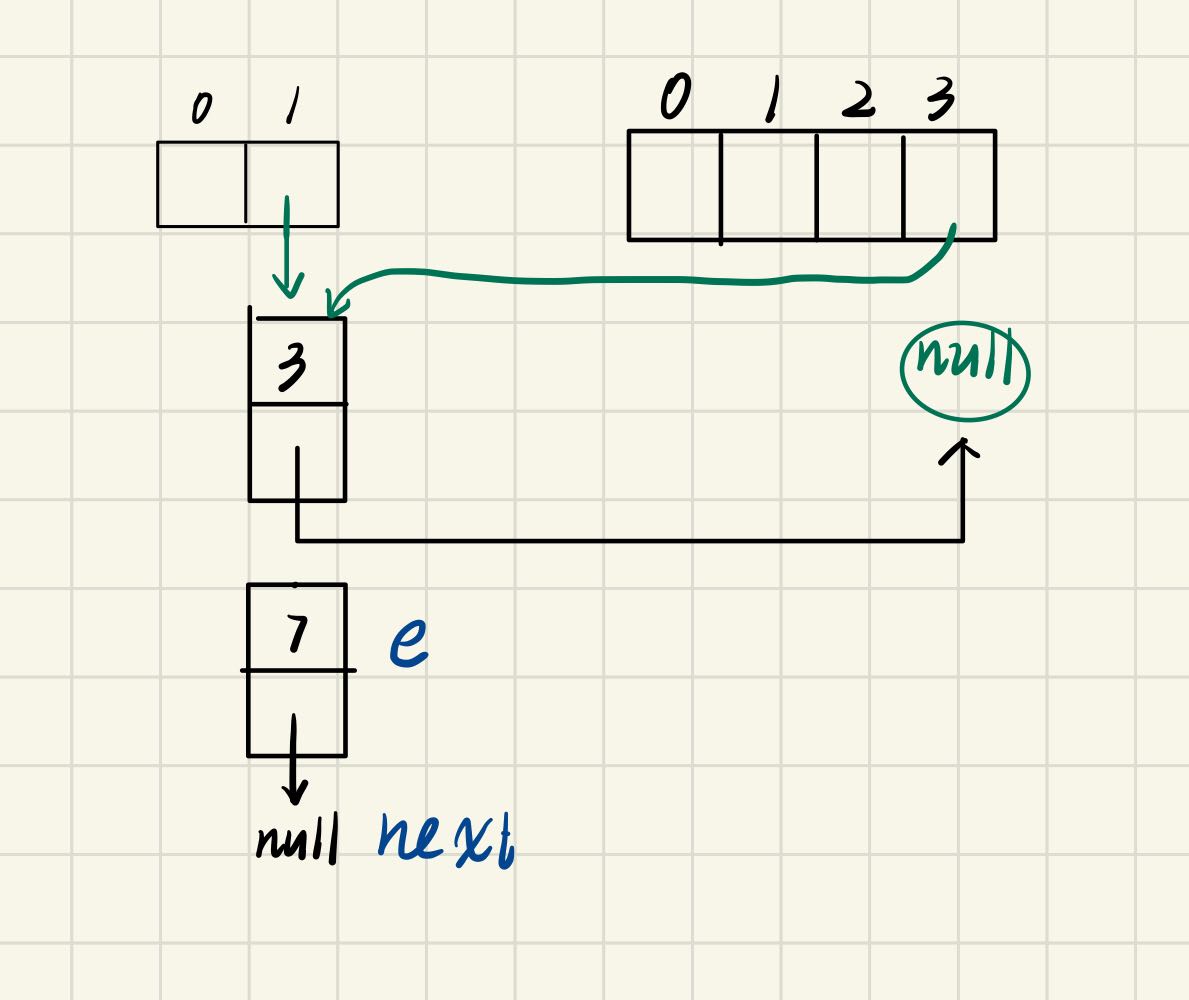 0 1
0 1 2 3
3
null
7
e
null next